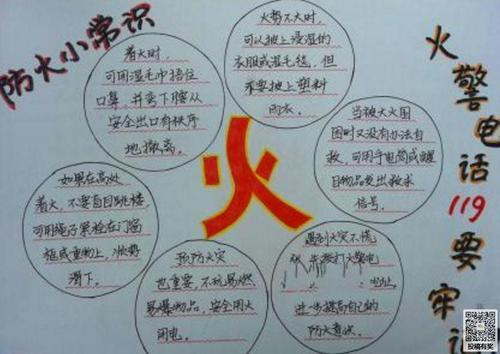 防火小常识
着火时，
可用湿毛巾捂住
口鼻，并弯下腰从
安全出口有秩序
地撤离。
火势不大时，
可以披上浸湿的
衣服或湿毛毯，但
不要披上塑料
雨衣。
当被大火围
困时又没有办法自
救，可用手电筒或醒
目物品发出求救
信号。
如果在高处
着火，不要盲目跳楼，
可用绳子紧栓在门窗
框或重物上，
滑下。
预防火灾
也重要，不玩易燃
易爆物品，安全用火
用电。
遇到火灾不慌
打火警电
地址。
进步提高自己的
防火意识。
火
火警电话119要牢记
投稿有奖